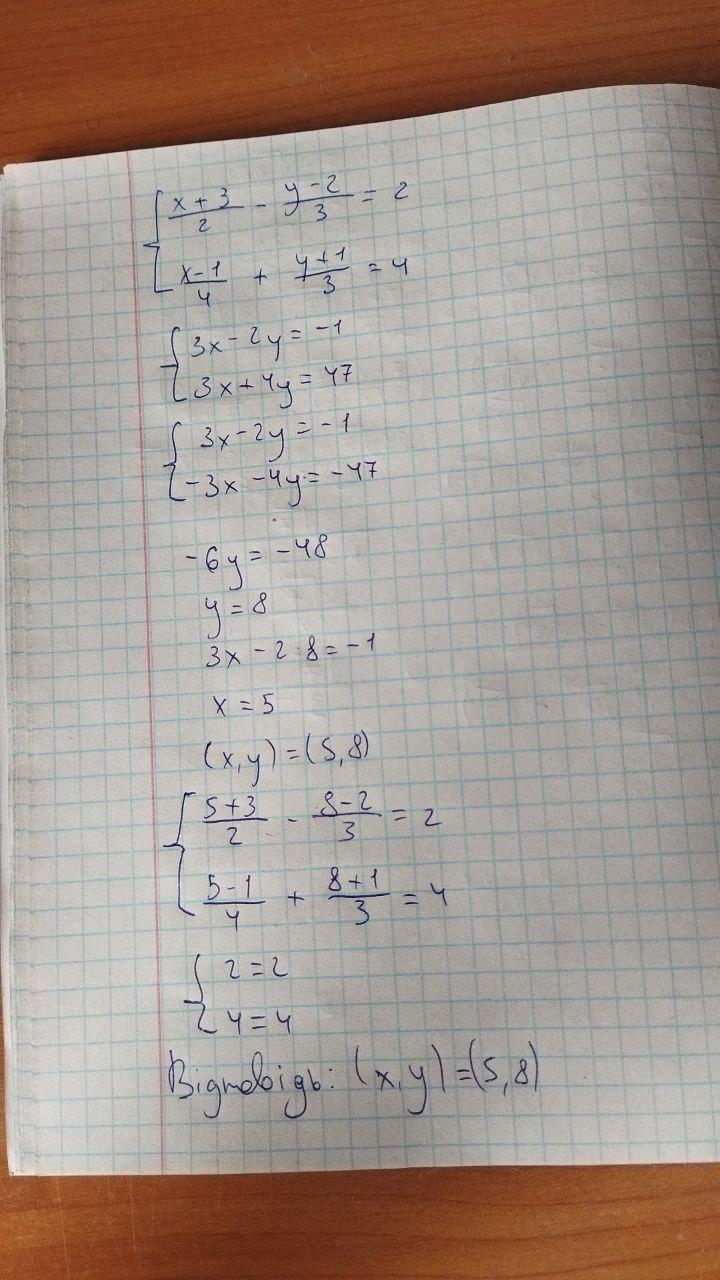 { (x+3)/2 - (y-2)/3 = 2
(x-1)/4 + (y+1)/3 = 4
{ 3x-2y=-1
3x+4y=47
{ 3x-2y=-1
-3x-4y=-47
-6y=-48
y=8
3x-2·8=-1
x=5
(x,y)=(5,8)
{ (5+3)/2 - (8-2)/3 = 2
(5-1)/4 + (8+1)/3 = 4
{ 2=2
4=4
Відповідь: (x,y)=(5,8)